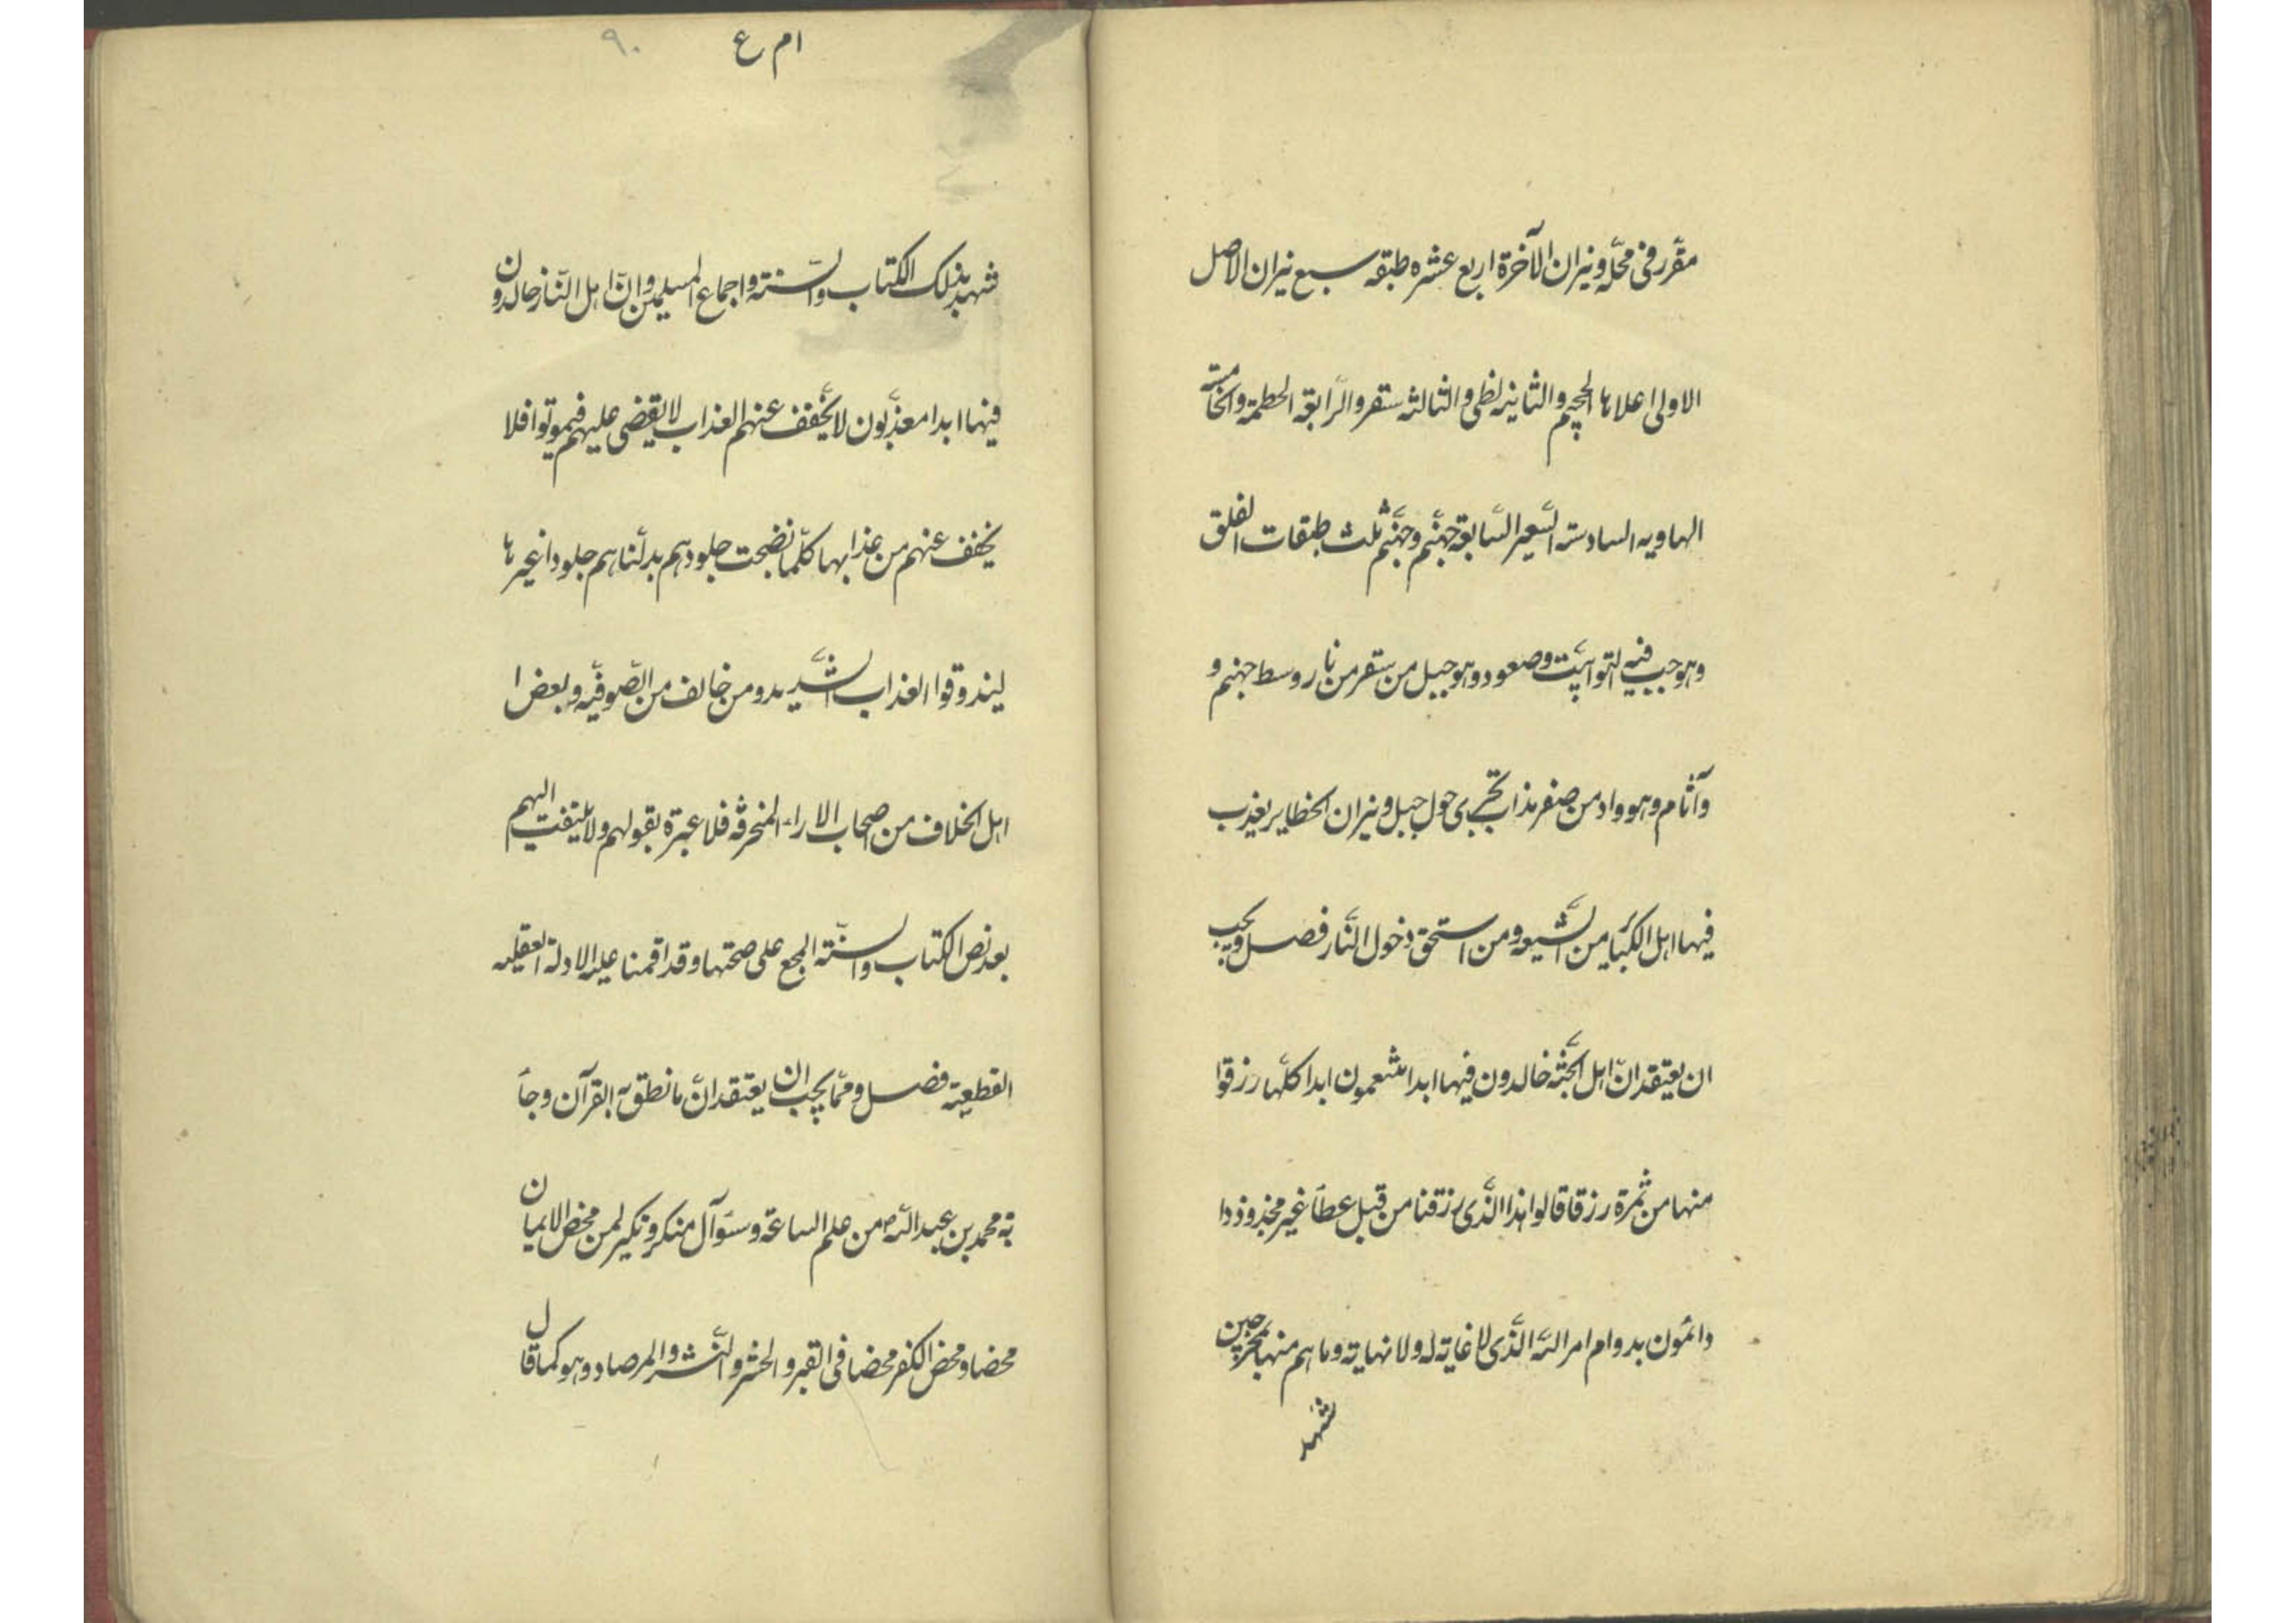 مقرر فی محله و نیران الآخرة اربع عشره طبقه سبع نیران الاصل
الاولی اعلاها الجحیم والثانیه لظی والثالثه سقر والرّابعة الحطمة والخامسة
الهاویه السادسة السّعیر السّابعة جهنّم وجهنّم ثلث طبقات الفلق
وهو جب فیه التوابیت وصعود وهو جبل من سقر من نار وسط جهنم و
وآثام وهو واد من صفر مذاب تجری حول جبل و نیران الحظایر یعذب
فیها اهل الکبائر من الشّیعه ومن استحق دخول النّار فصل ویجب
ان یعتقد انّ اهل الجنّة خالدون فیها ابدا متنعمون ابدا کلّما رزقوا
منها من ثمرة رزقا قالوا هذا الّذی رزقنا من قبل عطاء غیر مجذوذ دا
دائمون بدوام امر اللّه الّذی لا غایة له ولا نهایة وما هم منها بمخرجین
شهد
ام ع ۹۰
شهد بذلک الکتاب والسّنة واجماع المسلمین وانّ اهل النّار خالدون
فیها ابدا معذّبون لا یخفّف عنهم العذاب لا یقضی علیهم فیموتوا فلا
یخفف عنهم من عذابها کلّما نضجت جلودهم بدّلناهم جلودا غیرها
لیذوقوا العذاب الشّدید ومن خالف من الصّوفیّه وبعض ا
اهل الخلاف من اصحاب الاراء المنحرفة فلا عبرة بقولهم ولا یلتفت الیهم
بعد نص الکتاب والسّنّة المجمع علی صحتها وقد اقمنا علیه الادلة العقلیه
القطعیّة فصل و ممّا یجب ان یعتقد انّ ما نطق به القرآن وجآء
به محمد بن عبد اللّه ص من علم الساعة وسؤآل منکر و نکیر لمن محض الایمان
محضا ومحض الکفر محضا فی القبر والحشر والنّشر والمرصاد وهو کما قال